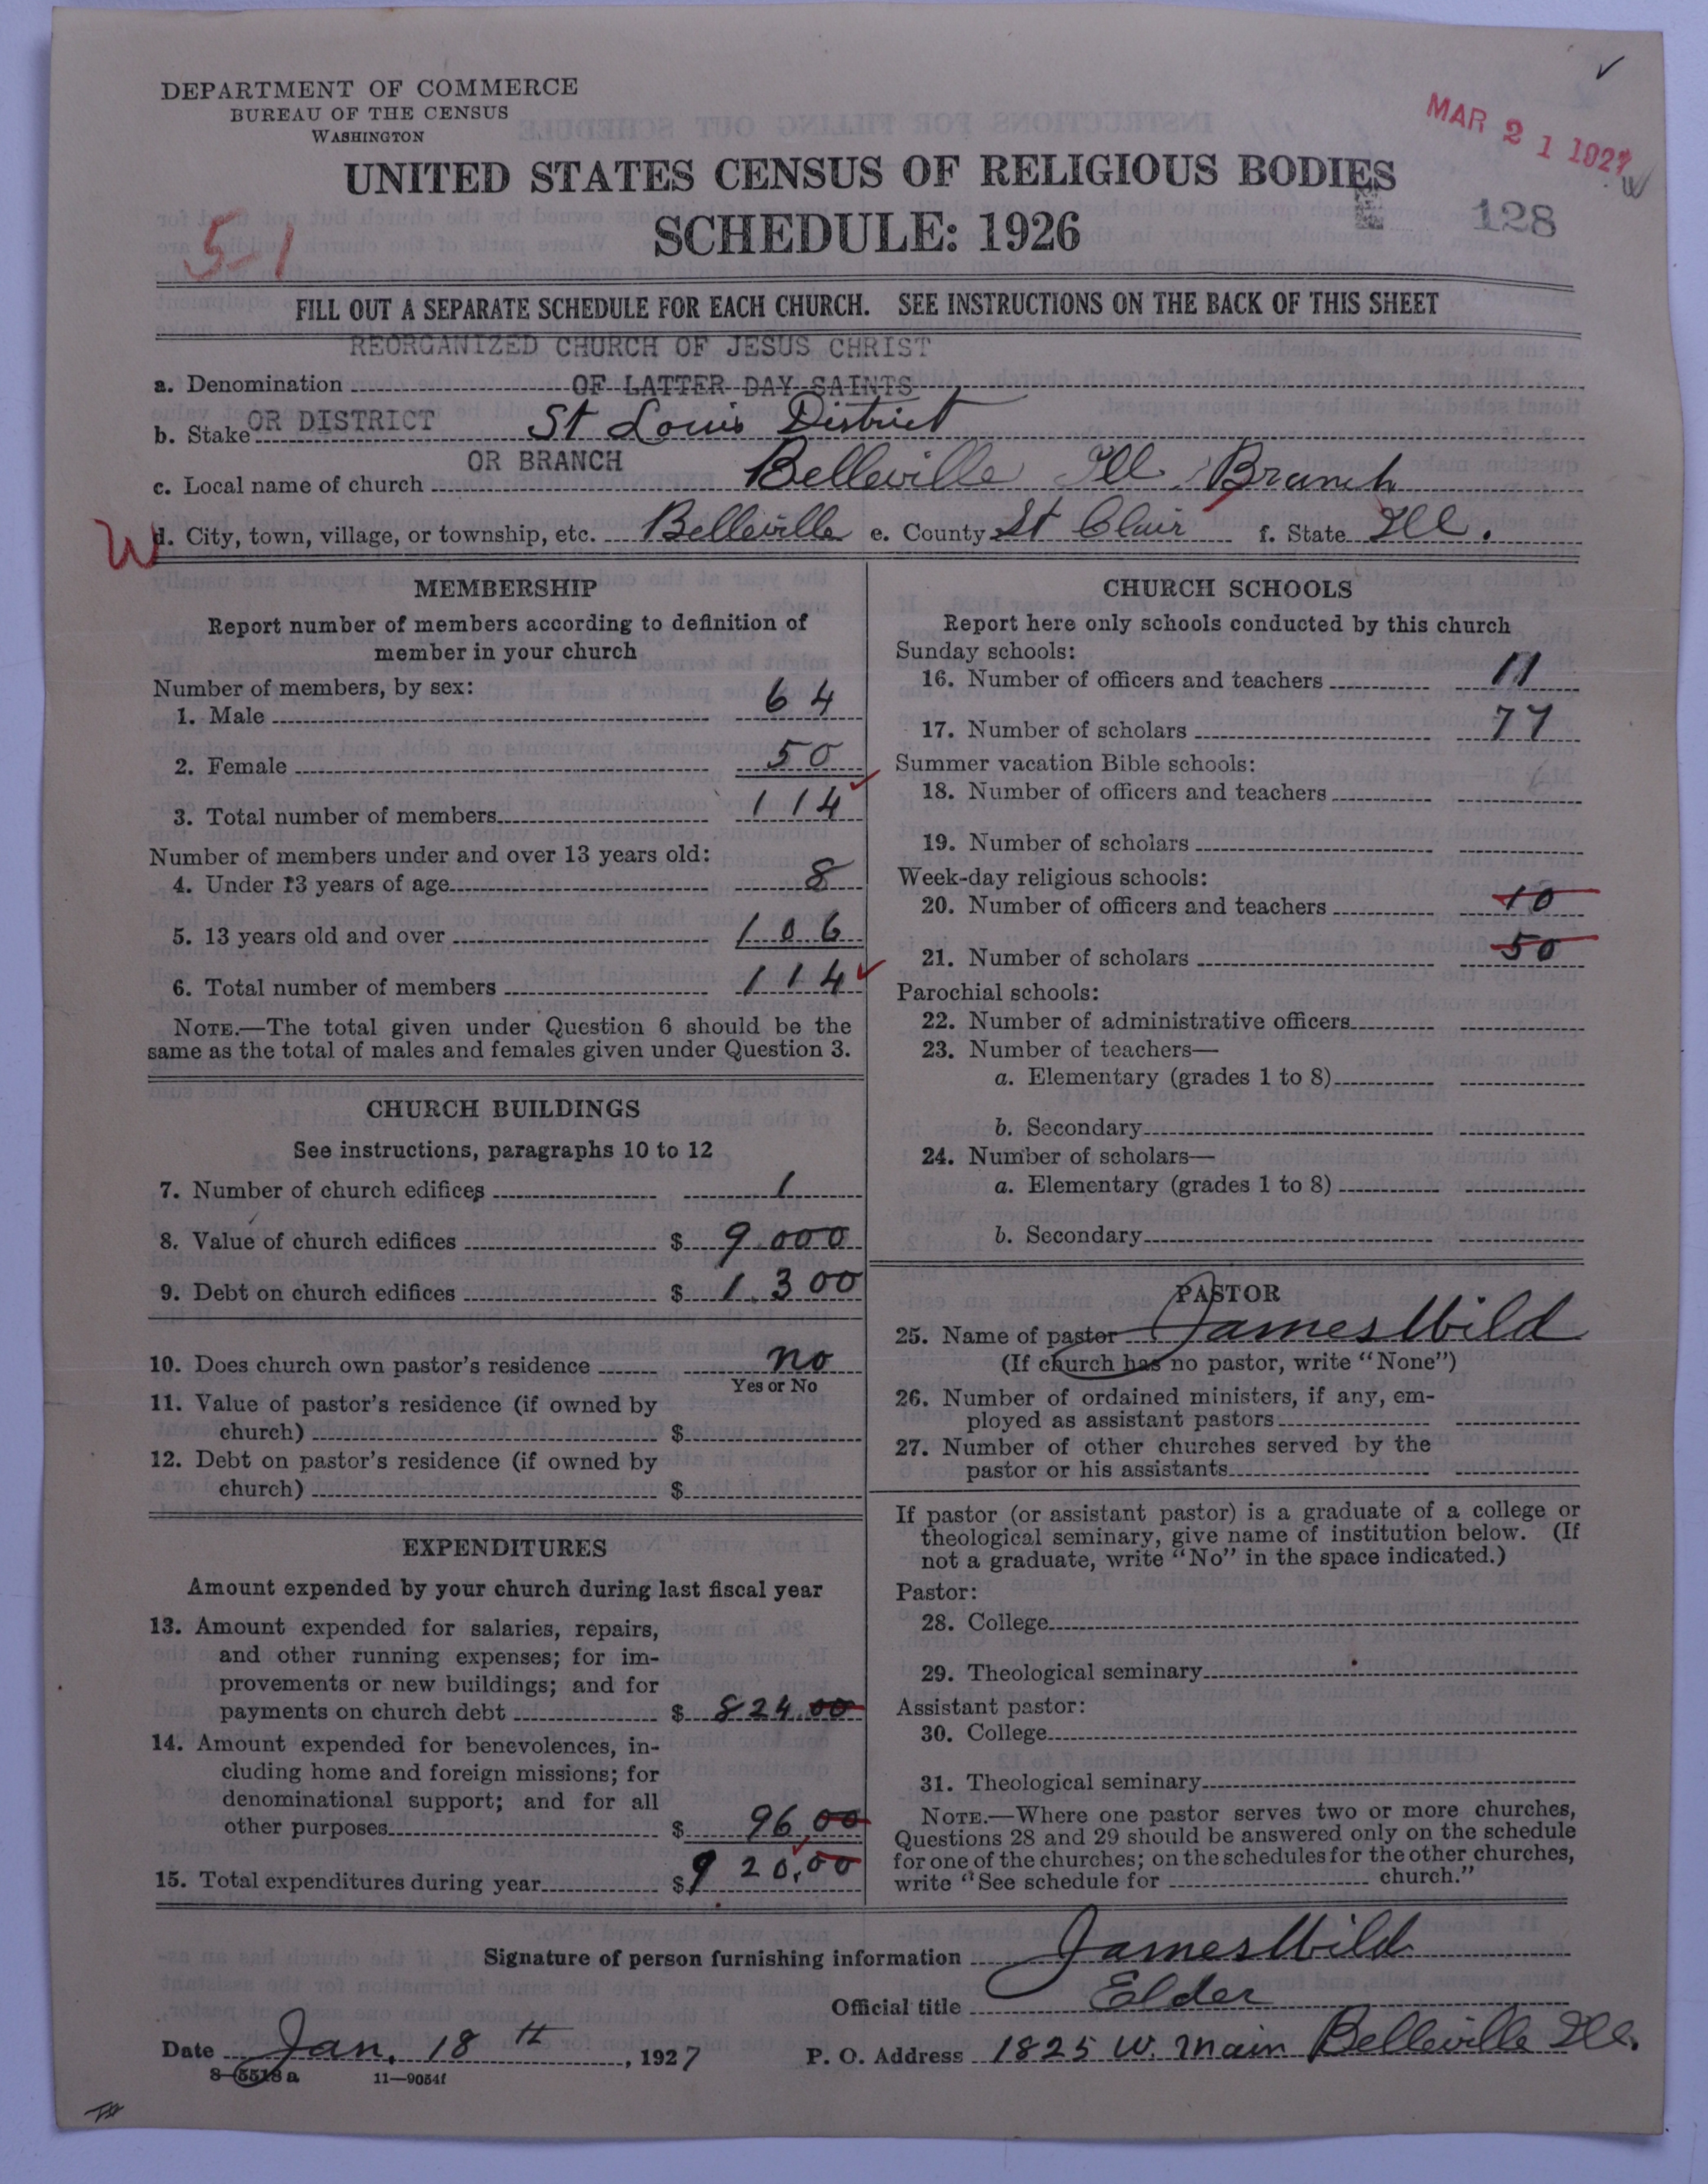 DEPARTMENT OF COMMERCE
BUREAU OF THE CENSUS
WASHINGTON
MAR 21 1927
UNITED STATES CENSUS OF RELIGIOUS BODIES
SCHEDULE: 1926
128
5-1
FILL OUT A SEPARATE SCHEDULE FOR EACH CHURCH. SEE INSTRUCTIONS ON THE BACK OF THIS SHEET
REORGANIZED CHURCH OF JESUS CHRIST
a. Denomination OF LATTER DAY SAINTS
b. Stake OR DISTRICT St Louis District
OR BRANCH
c. Local name of church Belleville Ill. Branch
W d. City, town, village, or township, etc. Belleville e. County St Clair f. State Ill.
MEMBERSHIP
Report number of members according to definition of
member in your church
Number of members, by sex:
1. Male 64
2. Female 50
3. Total number of members 114
Number of members under and over 13 years old:
4. Under 13 years of age 8
5. 13 years old and over 106
6. Total number of members 114
NOTE.—The total given under Question 6 should be the
same as the total of males and females given under Question 3.
CHURCH BUILDINGS
See instructions, paragraphs 10 to 12
7. Number of church edifices 1
8. Value of church edifices $ 9.000
9. Debt on church edifices $ 1.300
10. Does church own pastor's residence no
Yes or No
11. Value of pastor's residence (if owned by
church) $
12. Debt on pastor's residence (if owned by
church) $
EXPENDITURES
Amount expended by your church during last fiscal year
13. Amount expended for salaries, repairs,
and other running expenses; for im-
provements or new buildings; and for
payments on church debt $ 824.00
14. Amount expended for benevolences, in-
cluding home and foreign missions; for
denominational support; and for all
other purposes $ 96.00
15. Total expenditures during year $ 920.00
CHURCH SCHOOLS
Report here only schools conducted by this church
Sunday schools:
16. Number of officers and teachers 11
17. Number of scholars 77
Summer vacation Bible schools:
18. Number of officers and teachers
19. Number of scholars
Week-day religious schools:
20. Number of officers and teachers 10
21. Number of scholars 50
Parochial schools:
22. Number of administrative officers
23. Number of teachers—
a. Elementary (grades 1 to 8)
b. Secondary
24. Number of scholars—
a. Elementary (grades 1 to 8)
b. Secondary
PASTOR
25. Name of pastor James Wild
(If church has no pastor, write "None")
26. Number of ordained ministers, if any, em-
ployed as assistant pastors
27. Number of other churches served by the
pastor or his assistants
If pastor (or assistant pastor) is a graduate of a college or
theological seminary, give name of institution below. (If
not a graduate, write "No" in the space indicated.)
Pastor:
28. College
29. Theological seminary
Assistant pastor:
30. College
31. Theological seminary
NOTE.—Where one pastor serves two or more churches,
Questions 28 and 29 should be answered only on the schedule
for one of the churches; on the schedules for the other churches,
write "See schedule for church."
Signature of person furnishing information James Wild
Official title Elder
Date Jan. 18th, 1927 P. O. Address 1825 W. Main Belleville Ill.
8-5518a 11—9054f